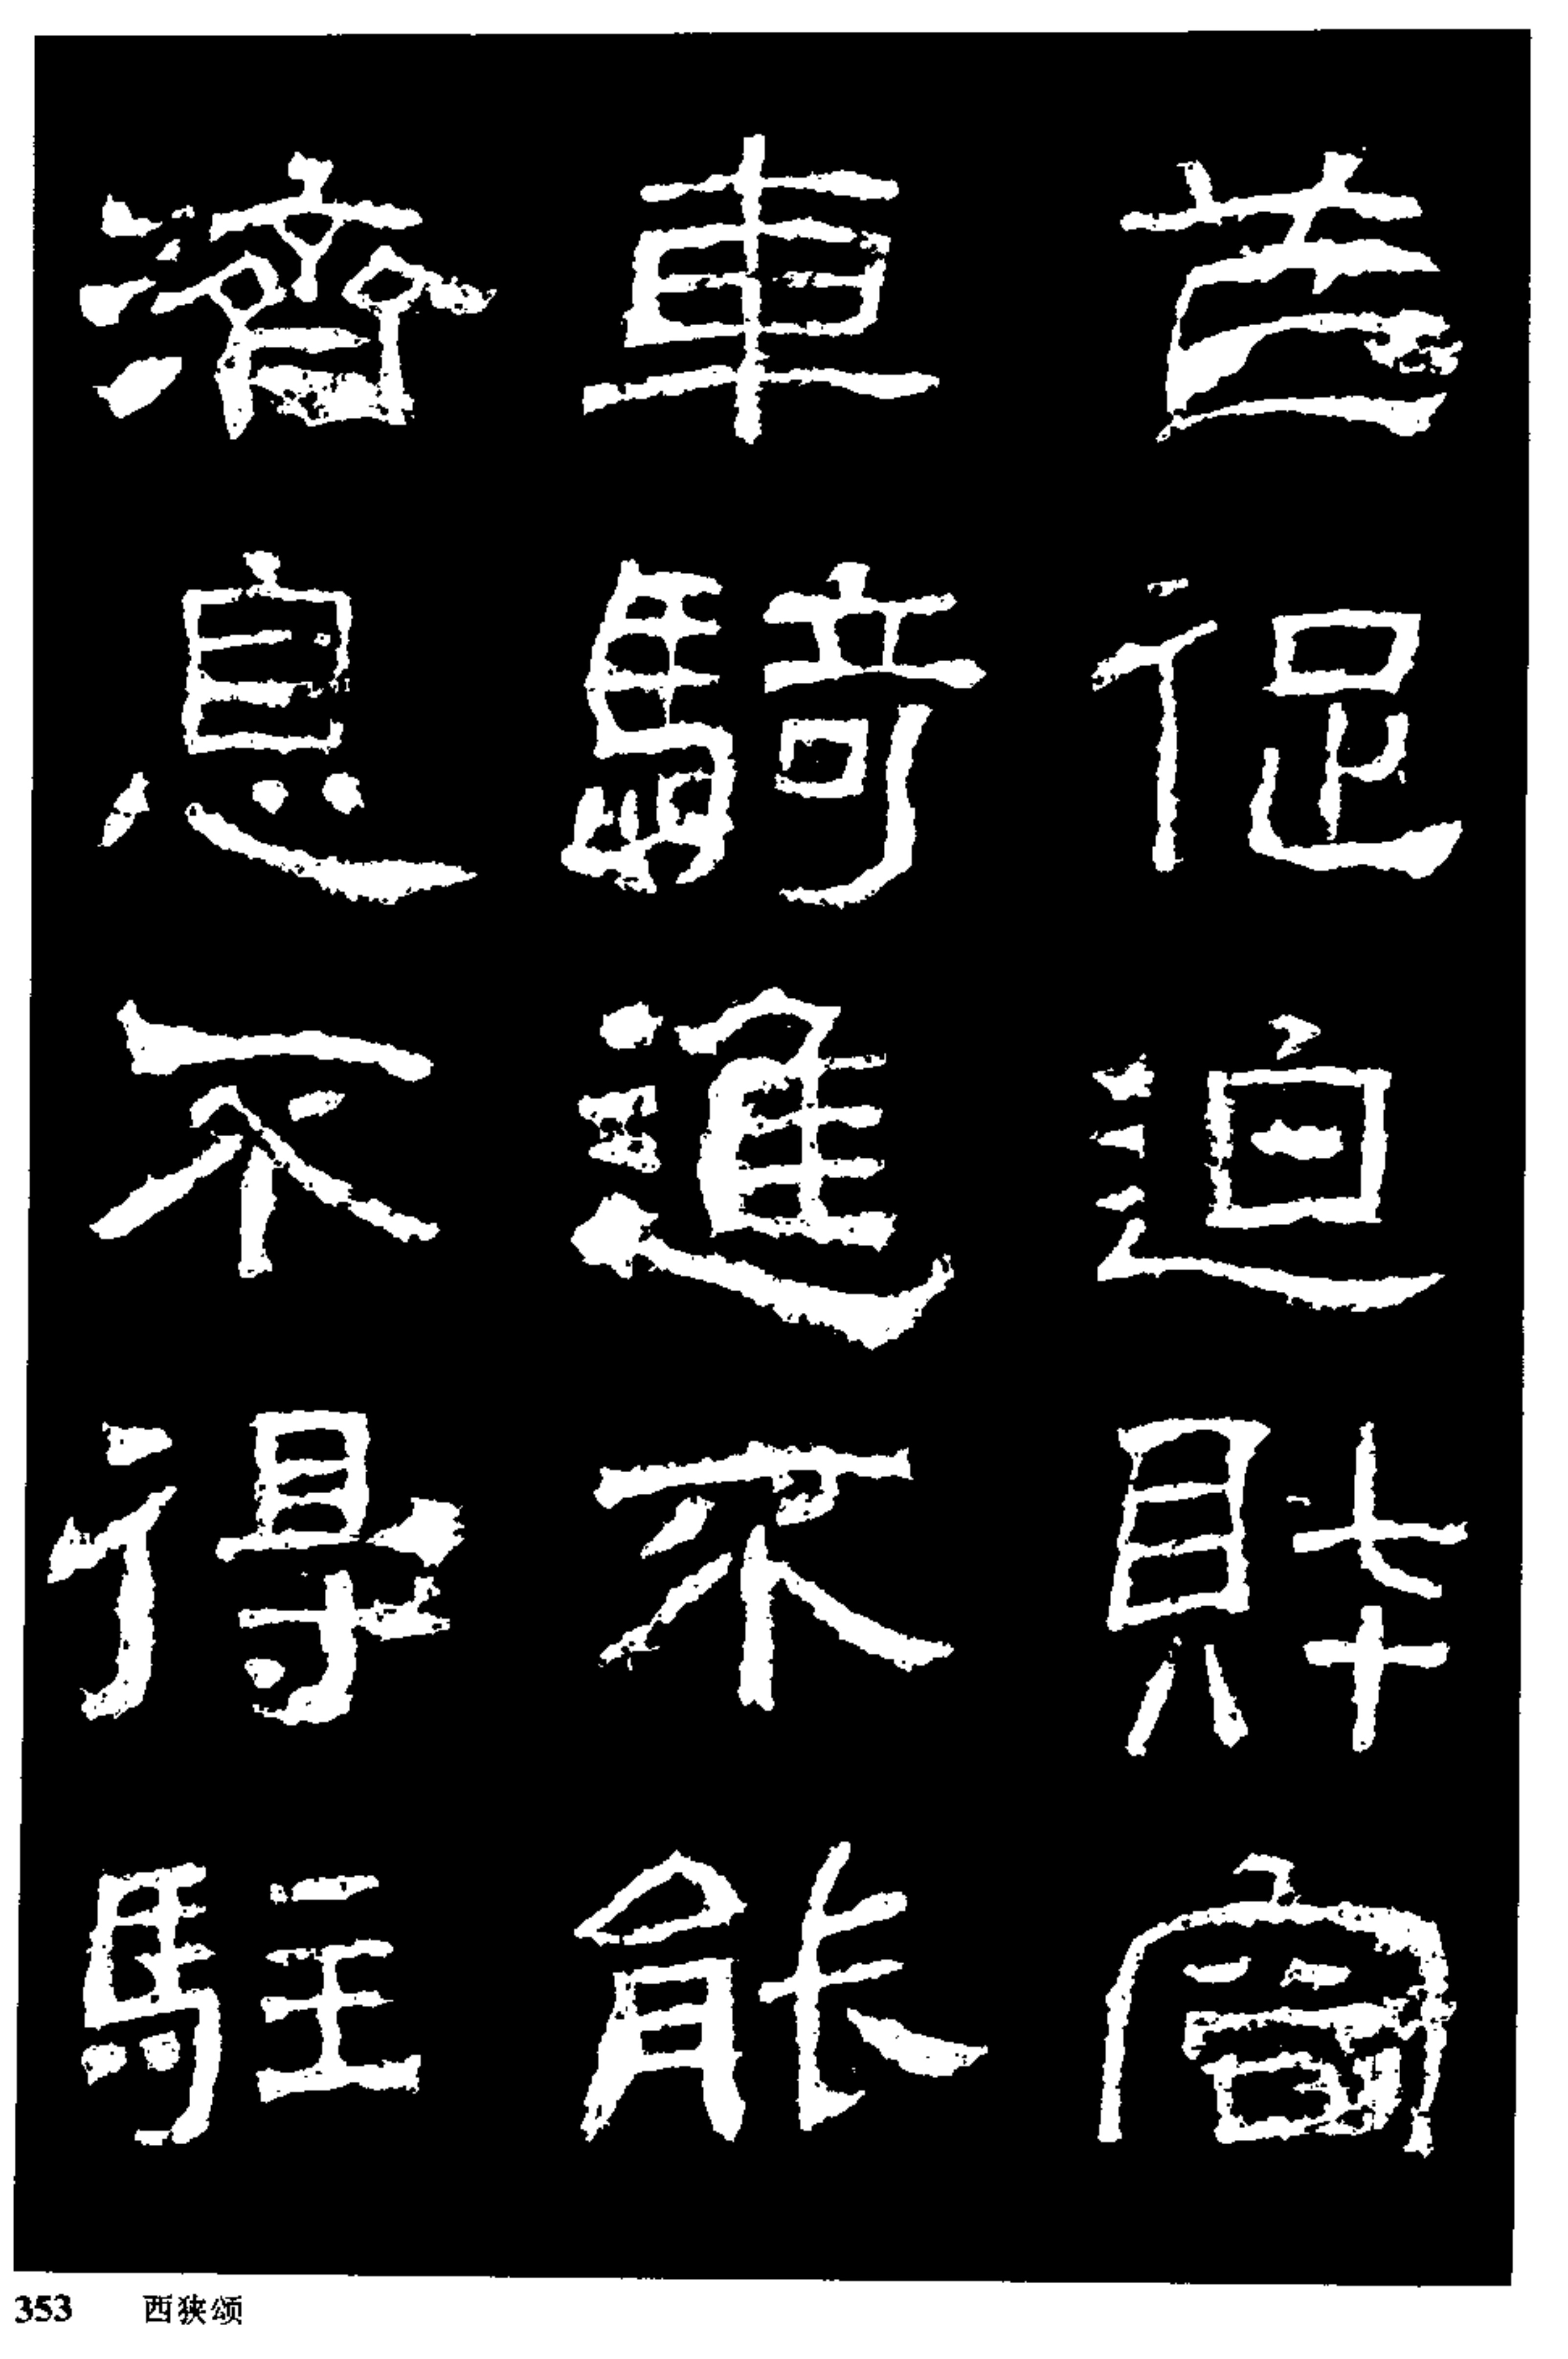 笮促迫財容
車騎進不能
濟息不得駐
353 西狭颂